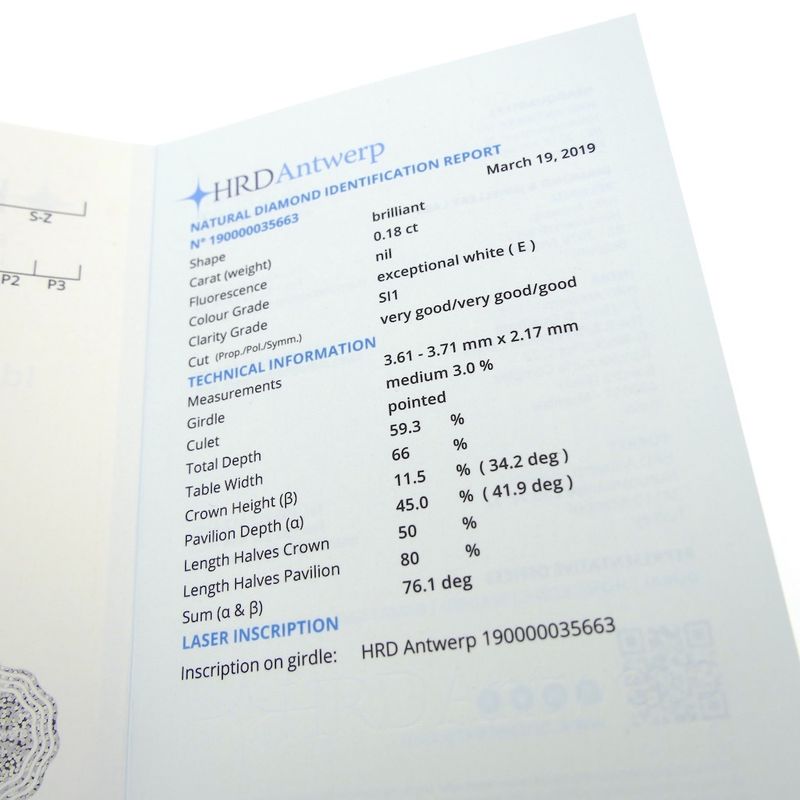 S-Z
P2 P3
HRDAntwerp
NATURAL DIAMOND IDENTIFICATION REPORT
N° 190000035663 March 19, 2019
Shape brilliant
Carat (weight) 0.18 ct
Fluorescence nil
Colour Grade exceptional white ( E )
Clarity Grade SI1
Cut (Prop./Pol./Symm.) very good/very good/good
TECHNICAL INFORMATION
Measurements 3.61 - 3.71 mm x 2.17 mm
Girdle medium 3.0 %
Culet pointed
Total Depth 59.3 %
Table Width 66 %
Crown Height (β) 11.5 % ( 34.2 deg )
Pavilion Depth (α) 45.0 % ( 41.9 deg )
Length Halves Crown 50 %
Length Halves Pavilion 80 %
Sum (α & β) 76.1 deg
LASER INSCRIPTION
Inscription on girdle: HRD Antwerp 190000035663